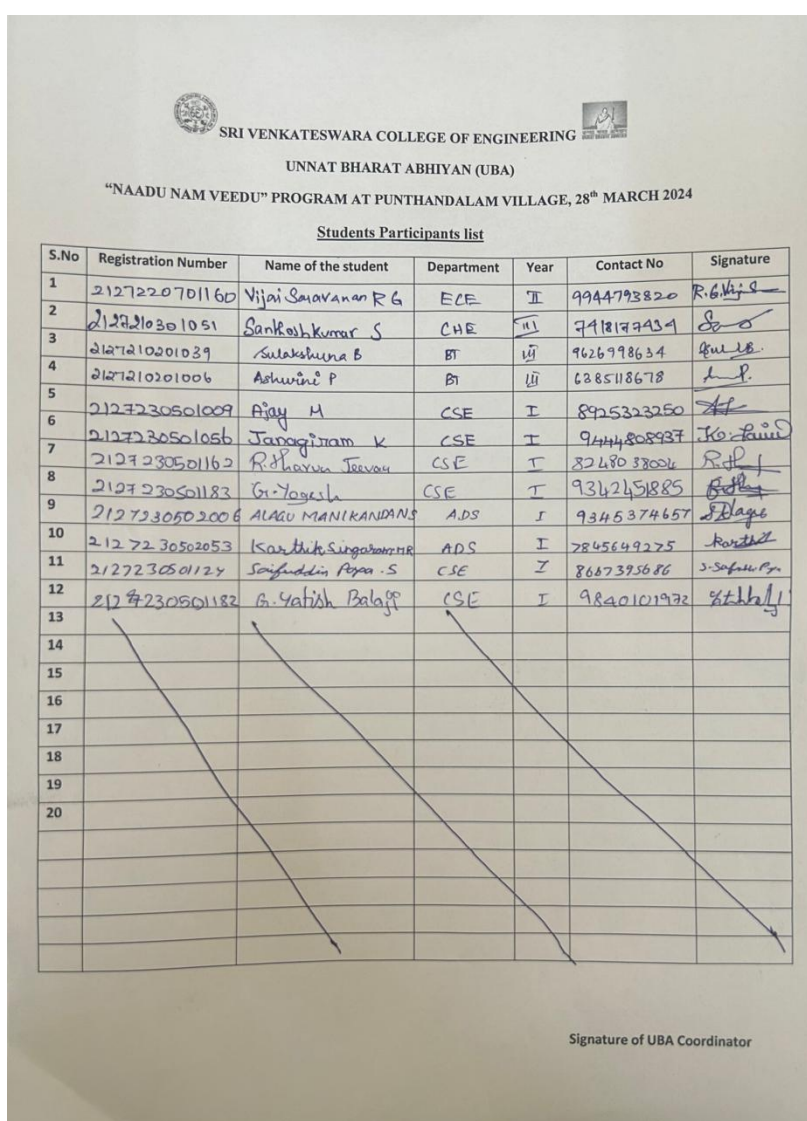 SRI VENKATESWARA COLLEGE OF ENGINEERING
UNNAT BHARAT ABHIYAN (UBA)
“NAADU NAM VEEDU” PROGRAM AT PUNTHANDALAM VILLAGE, 28th MARCH 2024
Students Participants list
S.No Registration Number Name of the student Department Year Contact No Signature
1 2127220701160 Vijai Saravanan R G ECE II 9944793820
2 2127210301051 Santhoshkumar S CHE III 7418177434
3 2127210201039 Sulakshuna B BT III 9626998634
4 2127210201006 Ashwini P BT III 6385118678
5 2127230501009 Ajay M CSE I 8925323250
6 2127230501056 Janagiram K CSE I 9444808937
7 2127230501162 R. Tharun Jeevan CSE I 8248038004
8 2127230501183 G. Yogesh CSE I 9342451885
9 2127230502006 ALAGU MANIKANDAN S A.DS I 9345374657
10 2127230502053 Karthik Singaram MR ADS I 7845649275 Karthik
11 2127230501124 Saifuddin Papa . S CSE I 8667395686
12 2127230501182 G. Yatish Balaji CSE I 9840101972
13
14
15
16
17
18
19
20
Signature of UBA Coordinator